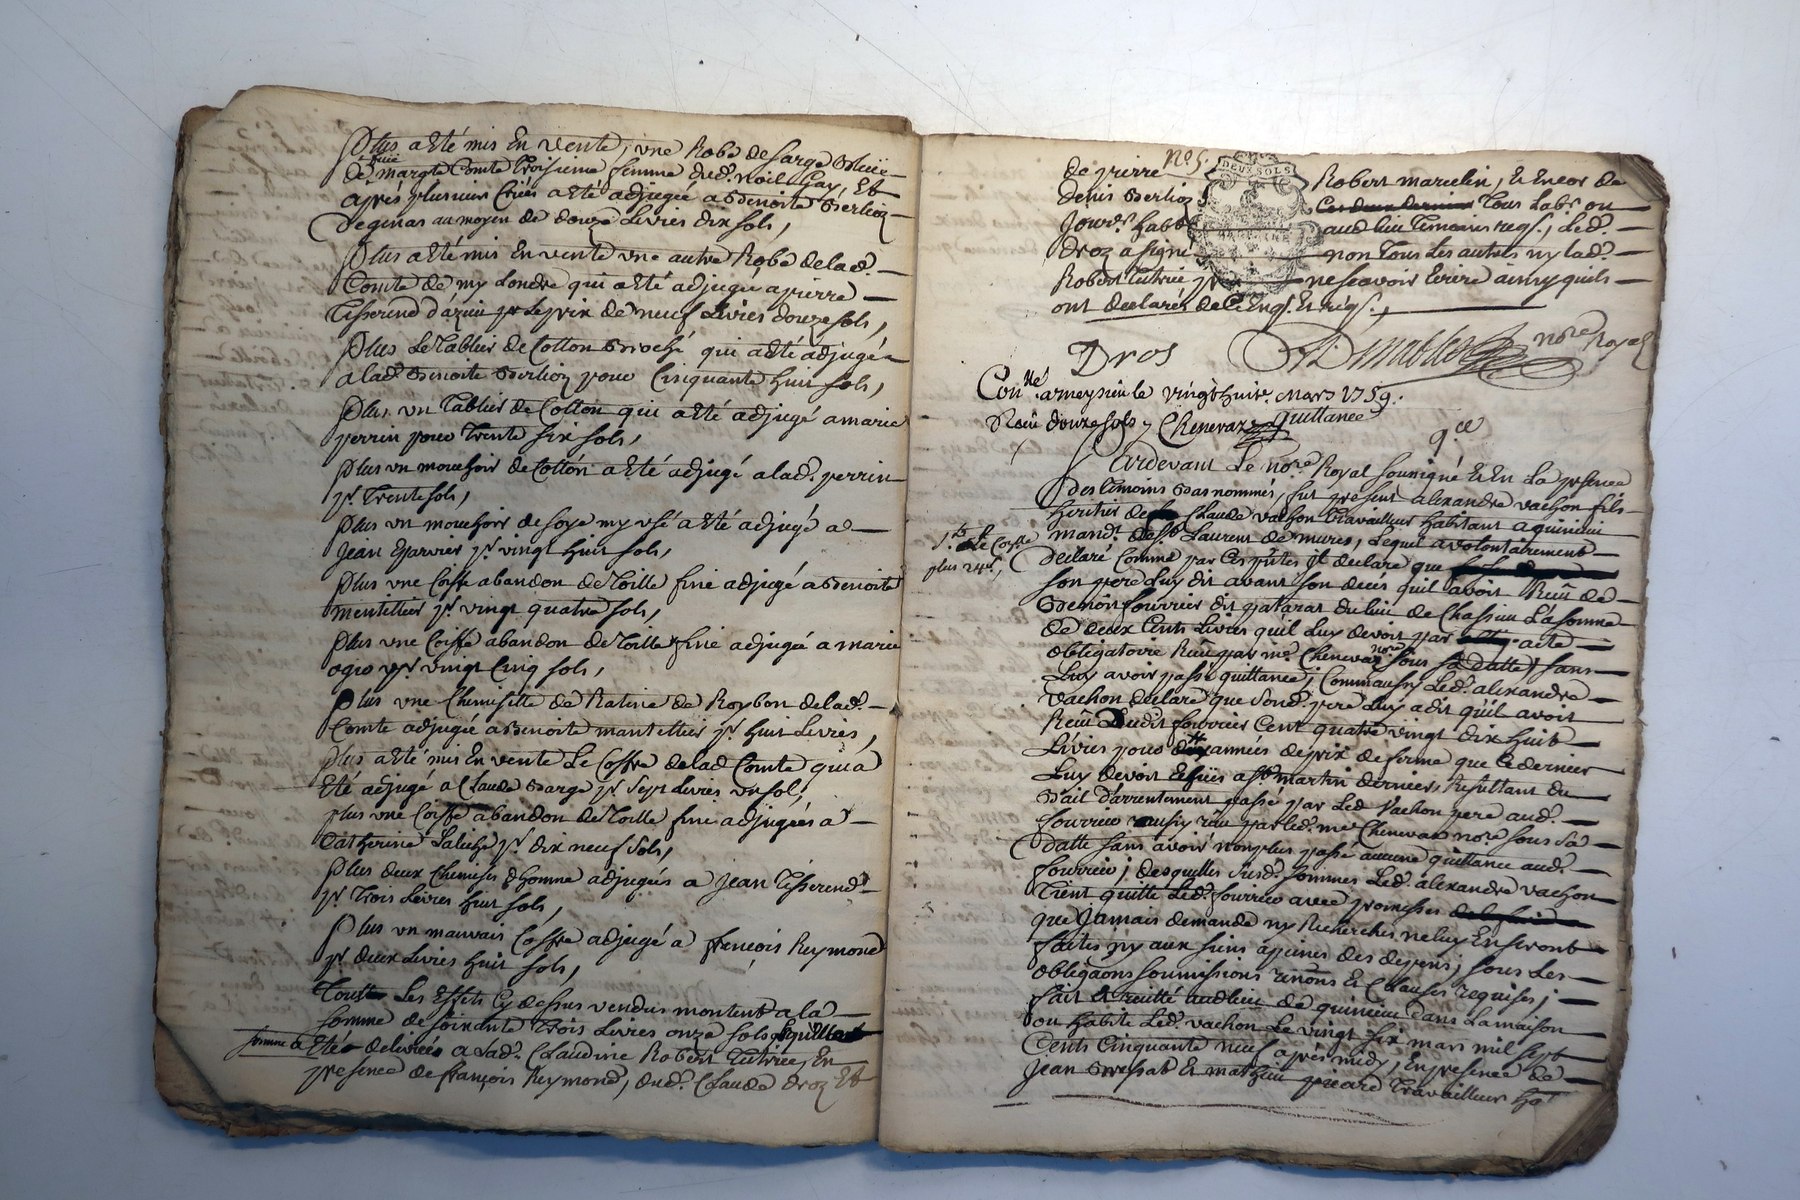 Plus a Eté mis En vente, une Robe de sarge Bleüe
de feuë margte Comte troisieme femme dud. noel Gay, Et
après plusieurs Criées a Eté adjugée a Benoite Berlioz
de genas au moyen de douze Livres dix sols,
Plus a Eté mis En vente une autre Robe de lad.
Comte de my Londre qui a Eté adjugée a pierre
Tisserend d'azieu pr Le prix de neuf Livres douze sols,
Plus Le Tablier de Cotton Broché qui a Eté adjugé
a lad. Benoite Berlioz pour Cinquante huit sols,
Plus un Tablier de Cotton qui a Eté adjugé a marie
perrin pour Trente six sols,
Plus un mouchoir de Cotton a Eté adjugé a lad. perrin
pr Trente sols,
Plus un mouchoir de soye my usé a Eté adjugé a
Jean Garnier pr vingt huit sols,
Plus une Coiffe abandon de Toille fine adjugé a Benoite
mentellier pr vingt quatre sols,
Plus une Coiffe abandon de Toille fine adjugée a marie
ogio pr vingt Cinq sols,
Plus une Chemisette de Ratine de Roybon de lad.
Comte adjugée a Benoite mantellier pr huit Livres,
Plus a Eté mis En vente Le Coffre de lad Comte qui a
Eté adjugé a Claude Barge pr sept Livres un sol,
plus une Coiffe abandon de Toille fine adjugées a
Catherine pr dix neuf sols,
Plus deux Chemises d'homme adjugées a Jean Tisserend
pr Trois Livres huit sols,
Plus un mauvais Coffre adjugé a françois Reymond
pr deux Livres huit sols,
Tous Les Effets Cy dessus vendus montent a la
somme de soixante Trois Livres onze sols Laquelle
somme a Eté delivrée a Lad. Claudine Robert Tutrice, En
presence de françois Reymond, dud. Claude Droz Et
No 5.
DEUX SOLS
de pierre Robert marcelin, Et Encor de
denis Berlioz Tous Labr. ou
Jourd. habt aud lieu Temoins reqs., Led.
droz a signé non Tous Les autres ny lad.
Robert Tutrice pr ne sçavoir Ecrire ainsy quils
ont declarés de Ce Enqs. Et reqs.,
Dros nore Royal
Conlé a meyzieu le vingt huite. Mars 1759.
Reçu douze sols Chenevaz
quittance
qce
Pardevant Le nore Royal soussigné Et En La presence
des temoins Bas nommés, fut present alexandre vachon fils
heritier de Claude vachon Travailleur habitant a quincieu
mandt. de St Laurent de mures, Lequel a volontairement
declaré Comme par Ces pntes Jl declare que
son pere Luy dit avant son decés quil avoit Reçu de
Benoit fourrier dit patarat du lieu de Chassieu La somme
de deux Cents Livres quil Luy devoit par acte
obligatoire Reçu par me. Chenevaz nore sous sa datte, sans
Luy avoir passé quittance, Comm'aussy Led. alexandre
vachon declare que sond. pere Luy a dit qu'il avoit
Reçu dudit fourrier Cent quatre vingt dix huit
Livres pour années de prix de ferme que Ce dernier
Luy devoit Echües a St martin dernier, Resultant du
Bail d'arrentement passé par Led Vachon pere aud.
fourrier aussy reçu par led. me Chenevaz nore. sous sa
datte sans avoir non plus passé aucune quittance aud.
fourrier; desquelles susd. sommes Led. alexandre vachon
Tient quitte Led. fourrier avec promesses
que Jamais demande ny Recherches ne luy En seront
faites ny aux siens a peines des depens; sous Les
obligaons soumissions renons Et Clauses requises;
fait Et recitté aud lieu de quincieu dans La maison
ou habite Led. vachon Le vingt six mars mil sept
Cents Cinquante neuf après midy, En presence de
Jean Bressat Et mathieu picard Travailleurs hat